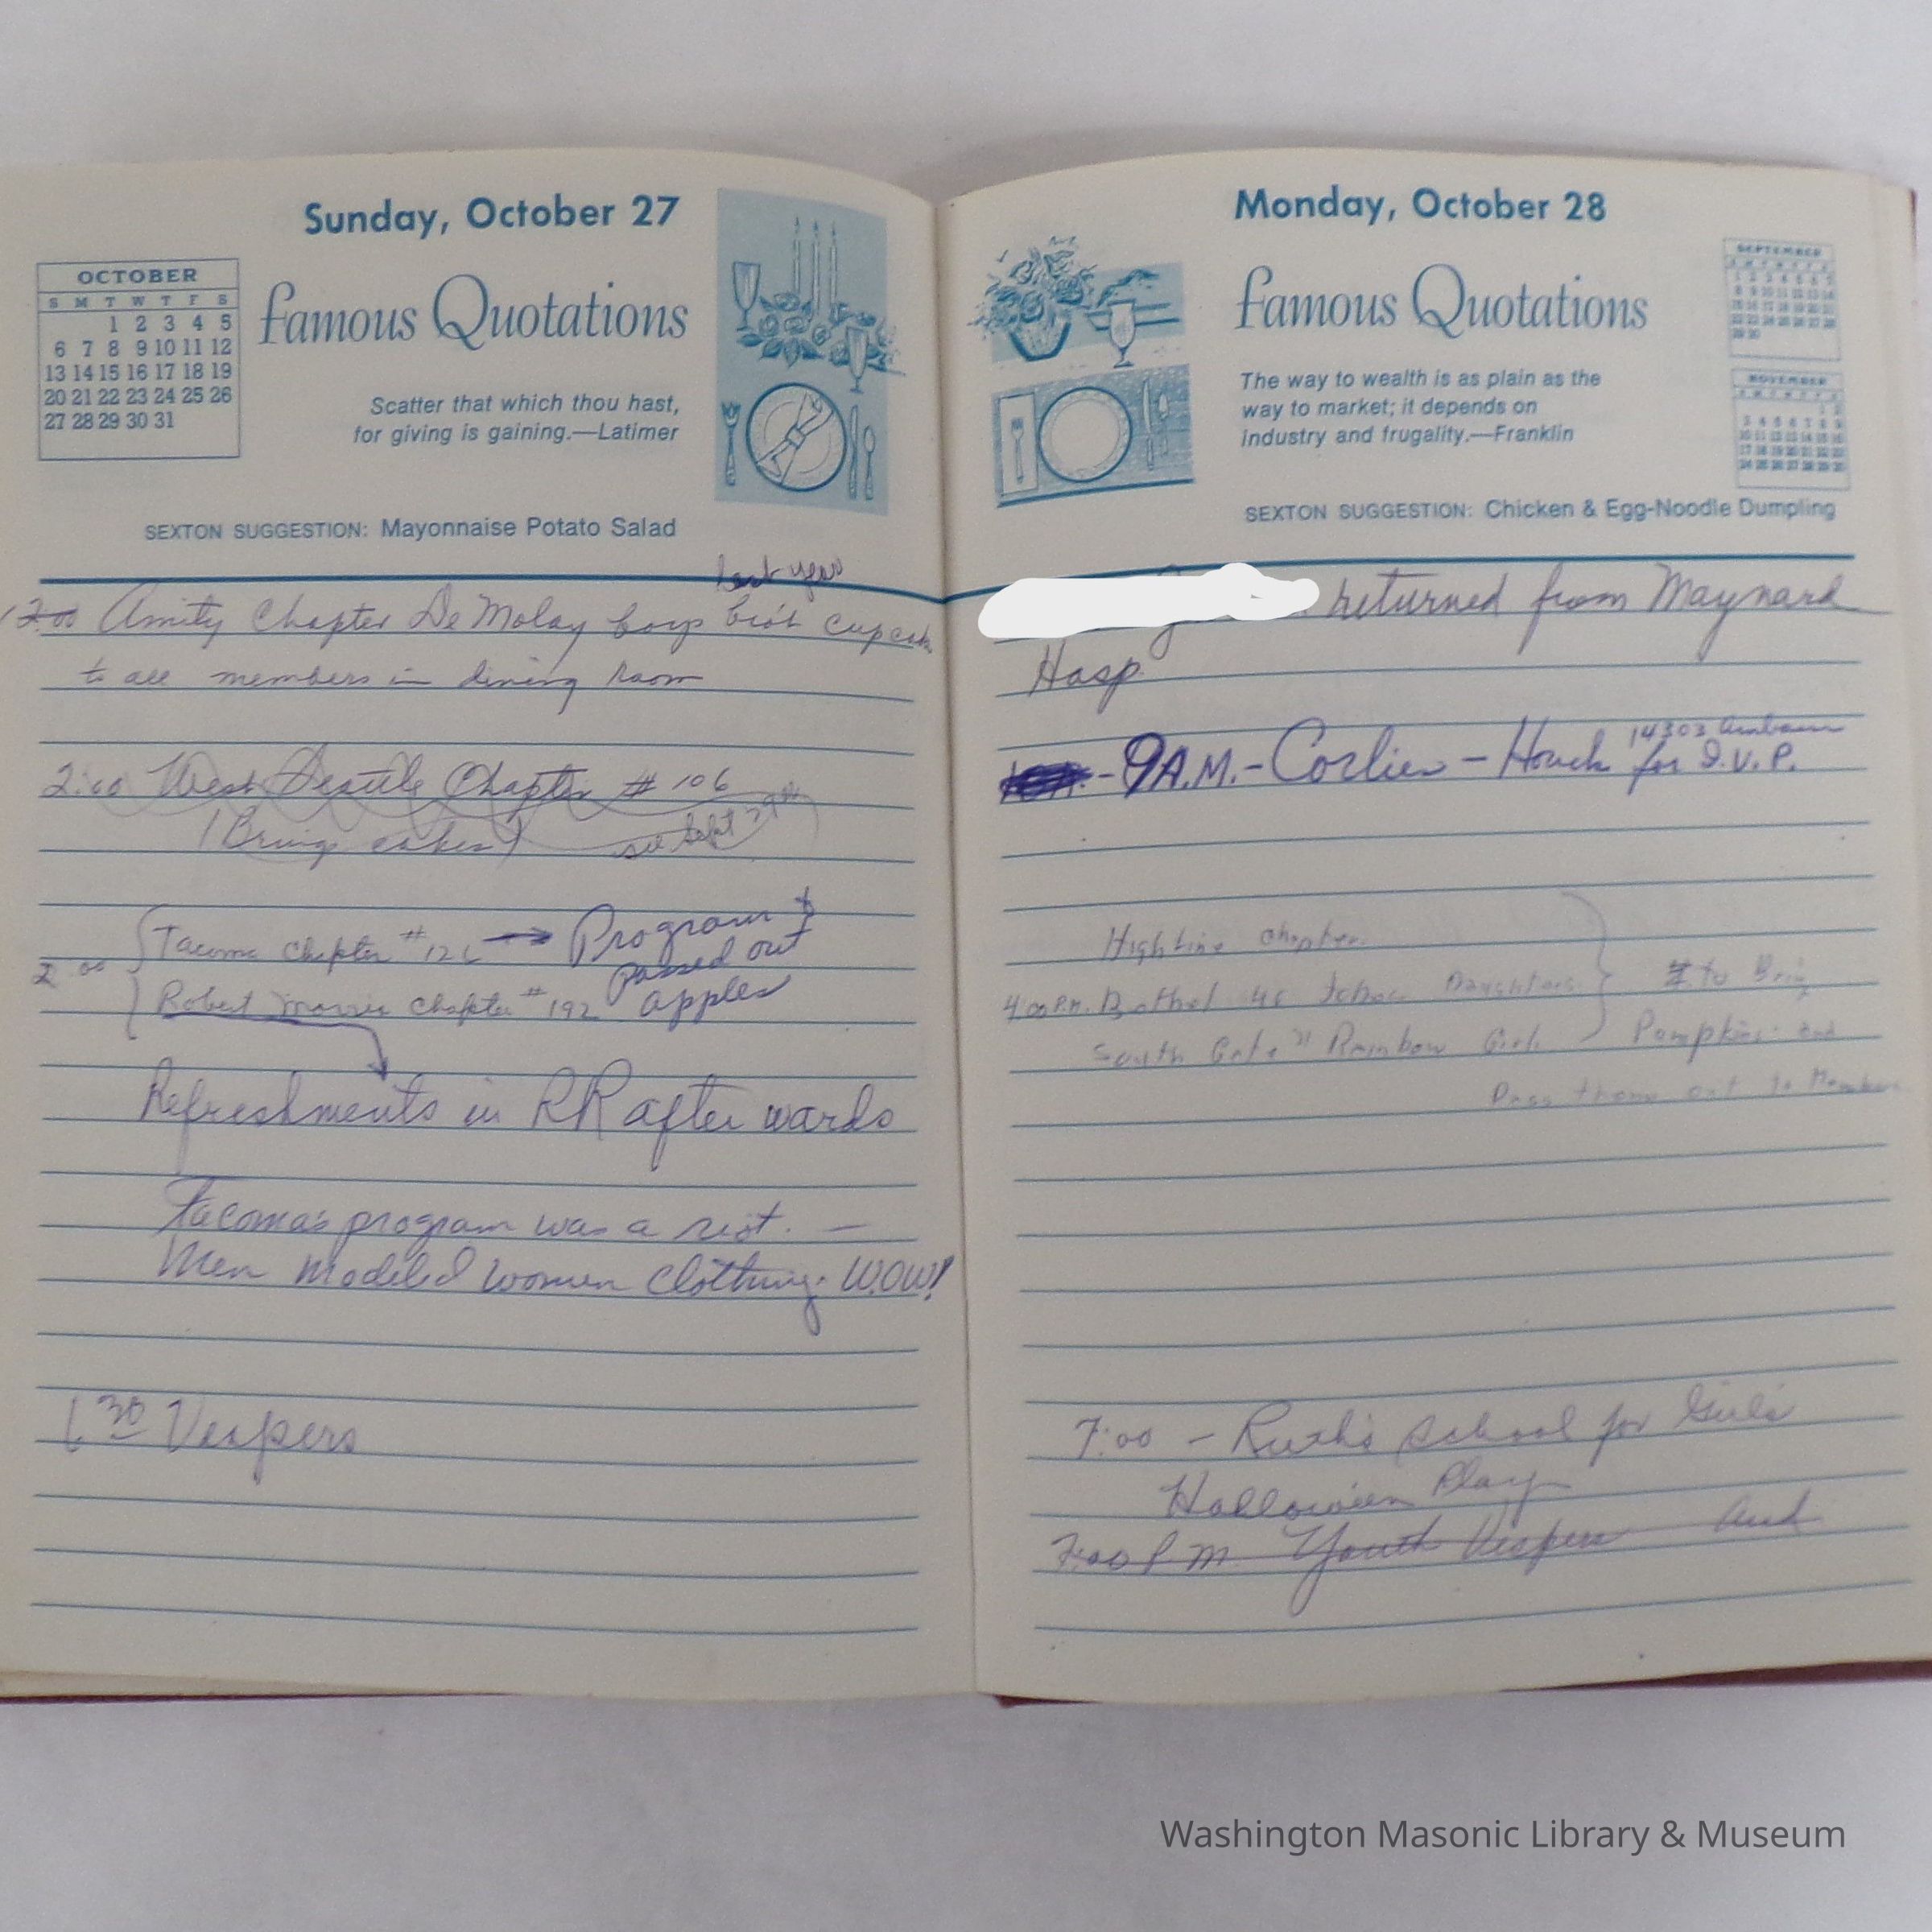 Sunday, October 27
OCTOBER
S M T W T F S
1 2 3 4 5
6 7 8 9 10 11 12
13 14 15 16 17 18 19
20 21 22 23 24 25 26
27 28 29 30 31
famous Quotations
Scatter that which thou hast,
for giving is gaining.—Latimer
SEXTON SUGGESTION: Mayonnaise Potato Salad
last year
Amity Chapter DeMolay boys bro't cupcakes
to all members in dining room
2:00 West Seattle Chapter # 106
(Bring cakes) see Sept 29th
2 00 Tacoma Chapter #126 → Program &
passed out
Robert Morris Chapter #192 apples
Refreshments in RR after wards
Tacoma's program was a riot. —
Men modeled women clothing. WOW!
1 30 Vespers
Monday, October 28
famous Quotations
The way to wealth is as plain as the
way to market; it depends on
industry and frugality.—Franklin
SEPTEMBER
NOVEMBER
SEXTON SUGGESTION: Chicken & Egg-Noodle Dumpling
returned from Maynard
Hosp.
14303 Ambaum
- 9 A.M. - Corlies - Houck for I.V.P.
Highline Chapter
4:00 P.M. Bothel 46 Daughters to Bring
South Gate Rainbow Girls Pumpkins and
Pass them out to Members
7:00 - Ruth's School for Girls
Halloween Play
7:00 P.M. Youth Vespers and
Washington Masonic Library & Museum